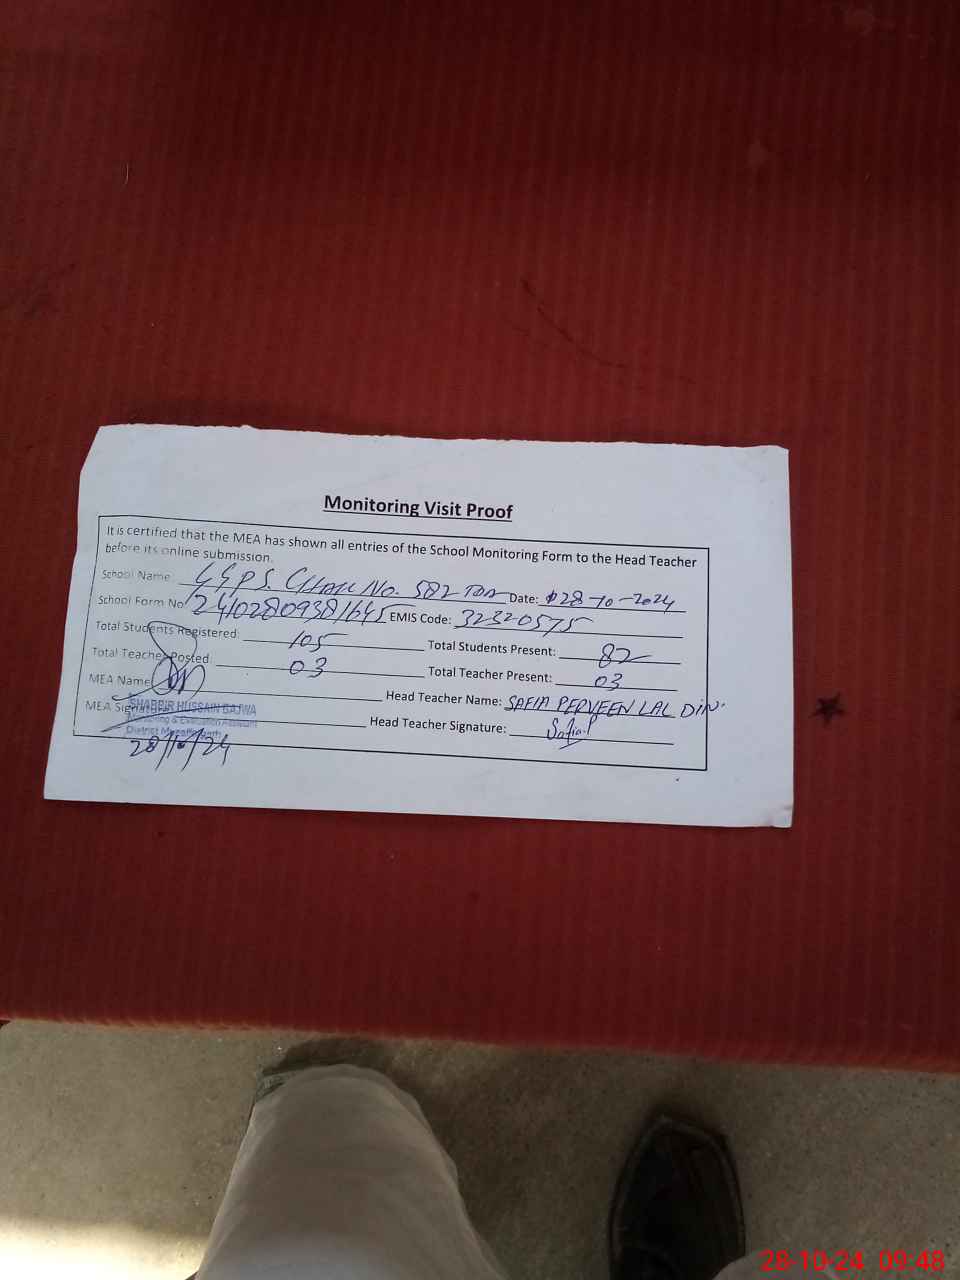 Monitoring Visit Proof
It is certified that the MEA has shown all entries of the School Monitoring Form to the Head Teacher
before its online submission.
School Name: GGPS. CHAK NO. 582 TDA Date: 28-10-2024
School Form No: 24102809381645 EMIS Code: 32320575
Total Students Registered: 105 Total Students Present: 82
Total Teacher Posted: 03 Total Teacher Present: 03
MEA Name: Head Teacher Name: SAFIA PERVEEN LAL DIN.
MEA Signature: Head Teacher Signature: Safia.P
SHABBIR HUSSAIN BAJWA
Monitoring & Evaluation Assistant
District Muzaffargarh
28/10/24
28-10-24 09:48